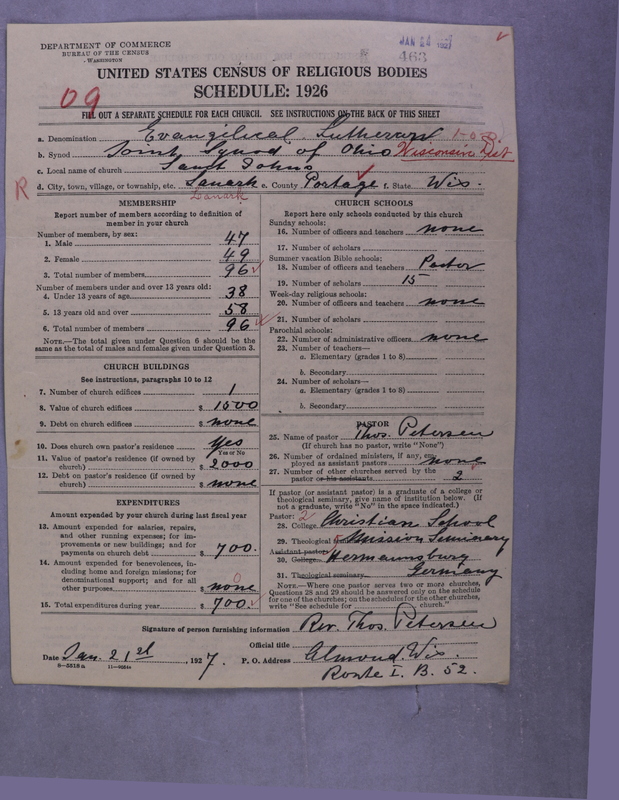 DEPARTMENT OF COMMERCE
BUREAU OF THE CENSUS
WASHINGTON
JAN 24 1927
463
UNITED STATES CENSUS OF RELIGIOUS BODIES
SCHEDULE: 1926
09
FILL OUT A SEPARATE SCHEDULE FOR EACH CHURCH. SEE INSTRUCTIONS ON THE BACK OF THIS SHEET
a. Denomination Evangelical Lutheran
b. Synod Joint Synod of Ohio Wisconsin Dist
c. Local name of church Sanct Johns
R d. City, town, village, or township, etc. Lanark e. County Portage f. State Wis.
Lanark
MEMBERSHIP
Report number of members according to definition of member in your church
Number of members, by sex:
1. Male 47
2. Female 49
3. Total number of members 96
Number of members under and over 13 years old:
4. Under 13 years of age 38
5. 13 years old and over 58
6. Total number of members 96
NOTE.—The total given under Question 6 should be the
same as the total of males and females given under Question 3.
CHURCH BUILDINGS
See instructions, paragraphs 10 to 12
7. Number of church edifices 1
8. Value of church edifices $ 1500
9. Debt on church edifices $ none
10. Does church own pastor's residence? Yes
Yes or No
11. Value of pastor's residence (if owned by
church) $ 2000
12. Debt on pastor's residence (if owned by
church) $ none
EXPENDITURES
Amount expended by your church during last fiscal year
13. Amount expended for salaries, repairs,
and other running expenses; for im-
provements or new buildings; and for
payments on church debt $ 700.
14. Amount expended for benevolences, in-
cluding home and foreign missions; for
denominational support; and for all
other purposes $ none
0
15. Total expenditures during year $ 700.
CHURCH SCHOOLS
Report here only schools conducted by this church
Sunday schools:
16. Number of officers and teachers none
17. Number of scholars
Summer vacation Bible schools:
18. Number of officers and teachers Pastor
19. Number of scholars 15
Week-day religious schools:
20. Number of officers and teachers none
21. Number of scholars
Parochial schools:
22. Number of administrative officers none
23. Number of teachers—
a. Elementary (grades 1 to 8)
b. Secondary
24. Number of scholars—
a. Elementary (grades 1 to 8)
b. Secondary
PASTOR
25. Name of pastor Thos. Petersen
(If church has no pastor, write "None")
26. Number of ordained ministers, if any, em-
ployed as assistant pastors none
27. Number of other churches served by the
pastor or his assistants 2
If pastor (or assistant pastor) is a graduate of a college or
theological seminary, give name of institution below. (If
not a graduate, write "No" in the space indicated.)
Pastor: 2
28. College Christian School
29. Theological Mission Seminary
Assistant pastor:
30. College Hermannsburg
31. Theological seminary Germany
NOTE.—Where one pastor serves two or more churches,
Questions 28 and 29 should be answered only on the schedule
for one of the churches; on the schedules for the other churches,
write "See schedule for ............ church."
Signature of person furnishing information Rev. Thos. Petersen
Official title
Date Jan. 21st, 1927. P. O. Address Almond. Wis.
Route I. B. 52.